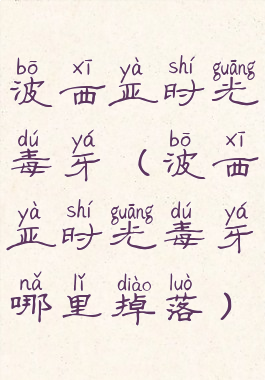 bō xī yà shí guāng
波西亚时光
dú yá bō xī
毒牙（波西
yà shí guāng dú yá
亚时光毒牙
nǎ lǐ diào luò
哪里掉落）